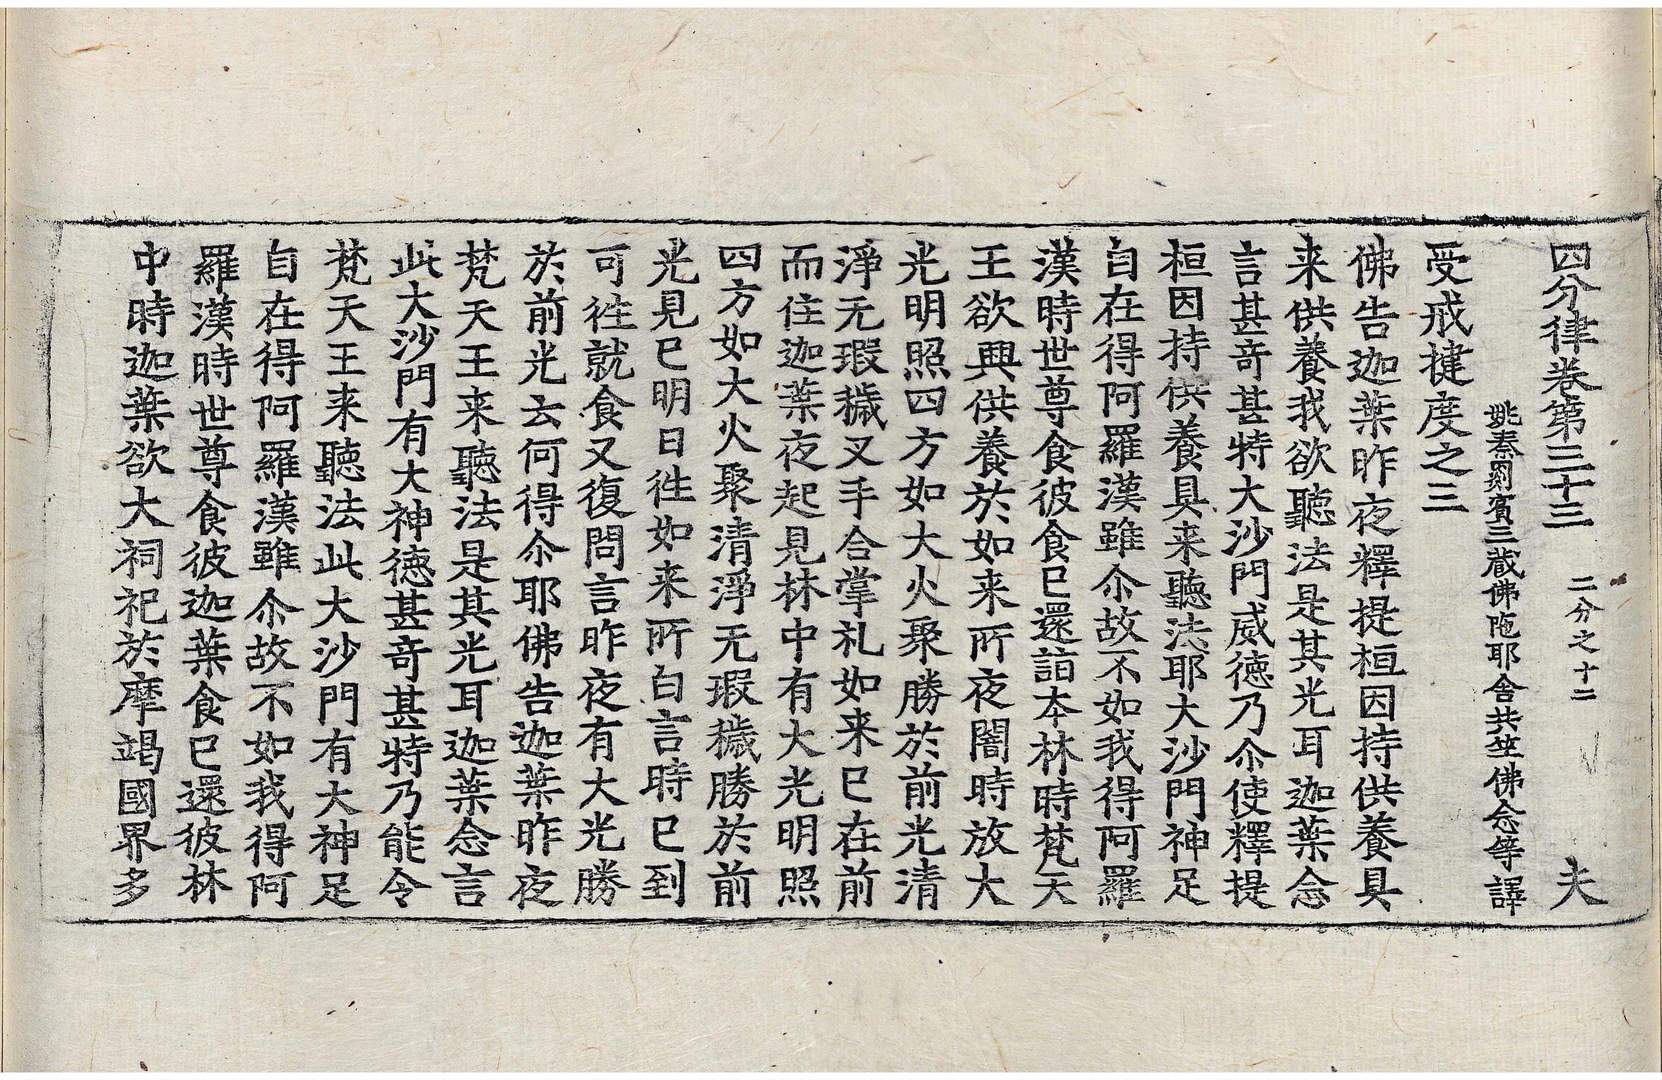 四分律卷第三十三 二分之十二 夫
姚秦罽賓三藏佛陁耶舍共竺佛念等譯
受戒揵度之三
佛告迦葉昨夜釋提桓因持供養具
来供養我欲聽法是其光耳迦葉念
言甚竒甚特大沙門威德乃尒使釋提
桓因持供養具来聽法耶大沙門神足
自在得阿羅漢雖尒故不如我得阿羅
漢時世尊食彼食已還詣本林時梵天
王欲興供養於如来所夜闇時放大
光明照四方如大火聚勝於前光清
淨无瑕穢叉手合掌礼如来已在前
而住迦葉夜起見林中有大光明照
四方如大火聚清淨无瑕穢勝於前
光見已明日徃如来所白言時已到
可徃就食又復問言昨夜有大光勝
於前光云何得尒耶佛告迦葉昨夜
梵天王来聽法是其光耳迦葉念言
此大沙門有大神德甚竒甚特乃能令
梵天王来聽法此大沙門有大神足
自在得阿羅漢雖尒故不如我得阿
羅漢時世尊食彼迦葉食已還彼林
中時迦葉欲大祠祀於摩竭國界多